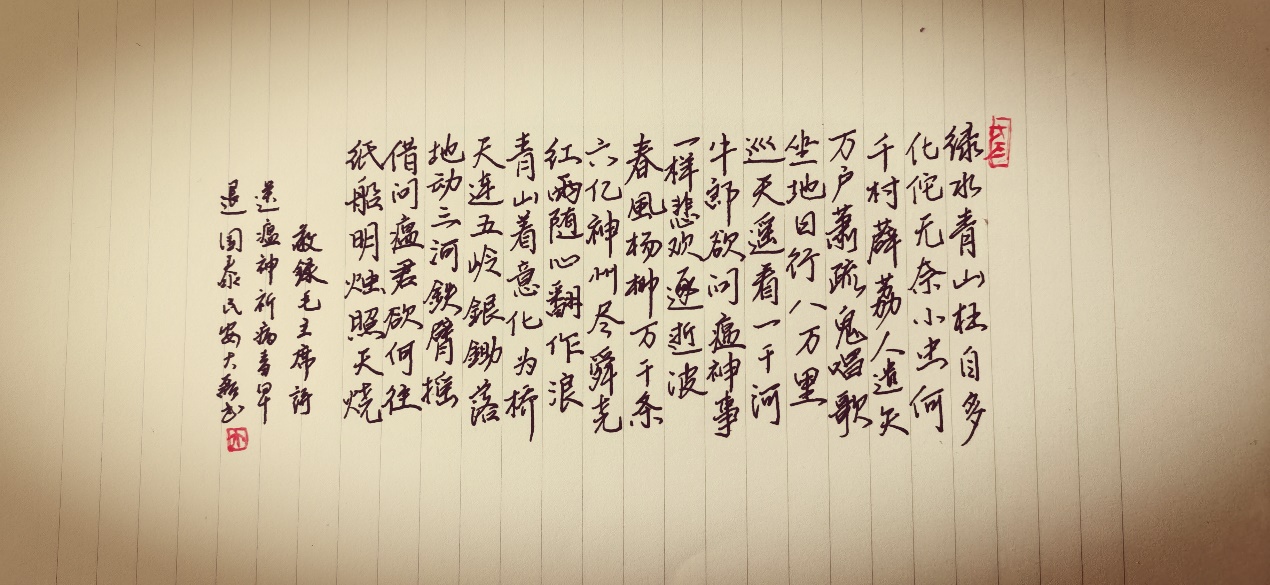 绿水青山枉自多
化佗无奈小虫何
千村薜荔人遗矢
万户萧疏鬼唱歌
坐地日行八万里
巡天遥看一千河
牛郎欲问瘟神事
一样悲欢逐逝波
春風杨柳万千条
六亿神州尽舜尧
红雨随心翻作浪
青山着意化为桥
天连五岭銀鋤落
地动三河鉄臂摇
借问瘟君欲何往
纸船明烛照天烧
敬録毛主席詩
送瘟神祈病毒早
退国泰民安大